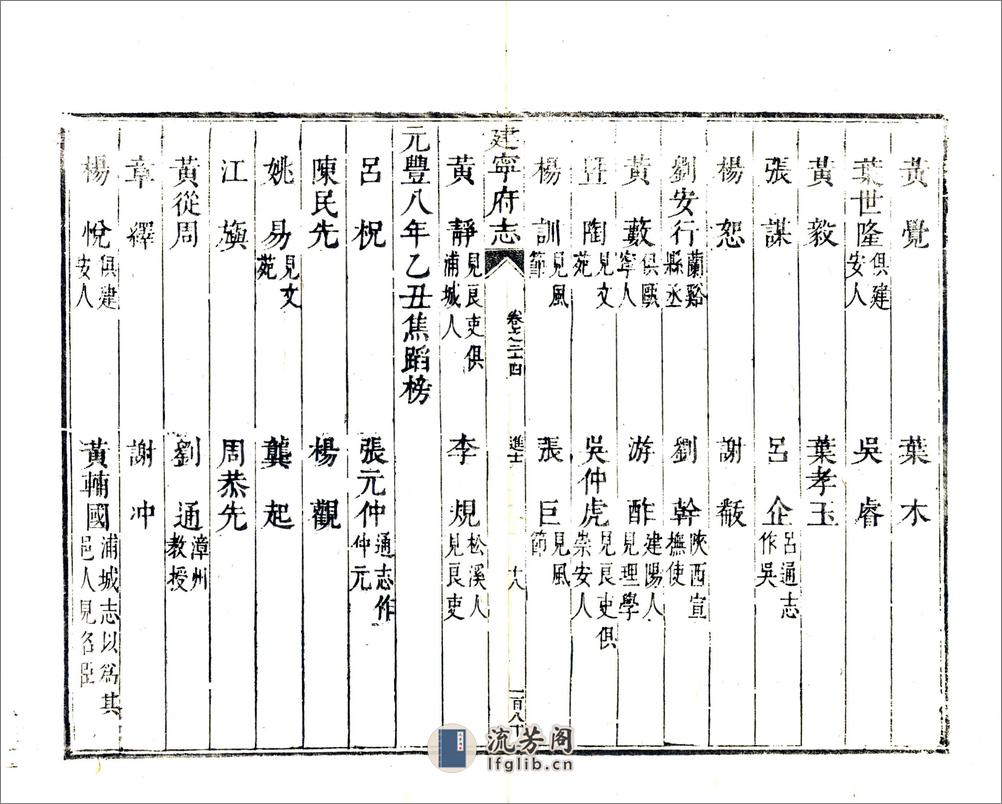 黃覺　葉木
葉世隆俱建安人　吳睿
黃毅　葉孝玉
張謀　呂企呂通志作吳
楊恕　謝皾
劉安行蘭谿縣丞　劉幹陝西宣撫使
黃藪俱甌寧人　游酢建陽人見理學
陶見文苑　吳仲虎見良吏俱崇安人
楊訓見風節　張巨見風節
建寧府志　卷之二十四　進士　十八　一百八十
黃靜見良吏俱浦城人　李規松溪人見良吏
元豐八年乙丑焦蹈榜
呂柷　張元仲通志作仲元
陳民先　楊觀
姚易見文苑　龔起
江旟　周恭先
黃從周　劉通漳州教授
章繹　謝冲
楊悅俱建安人　黃輔國浦城志以為其邑人見名臣
流芳阁
lfglib.cn